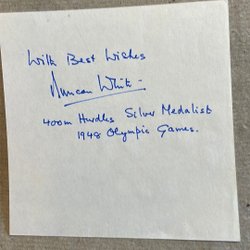 With Best Wishes
Duncan White
400m Hurdles Silver Medalist
1948 Olympic Games.